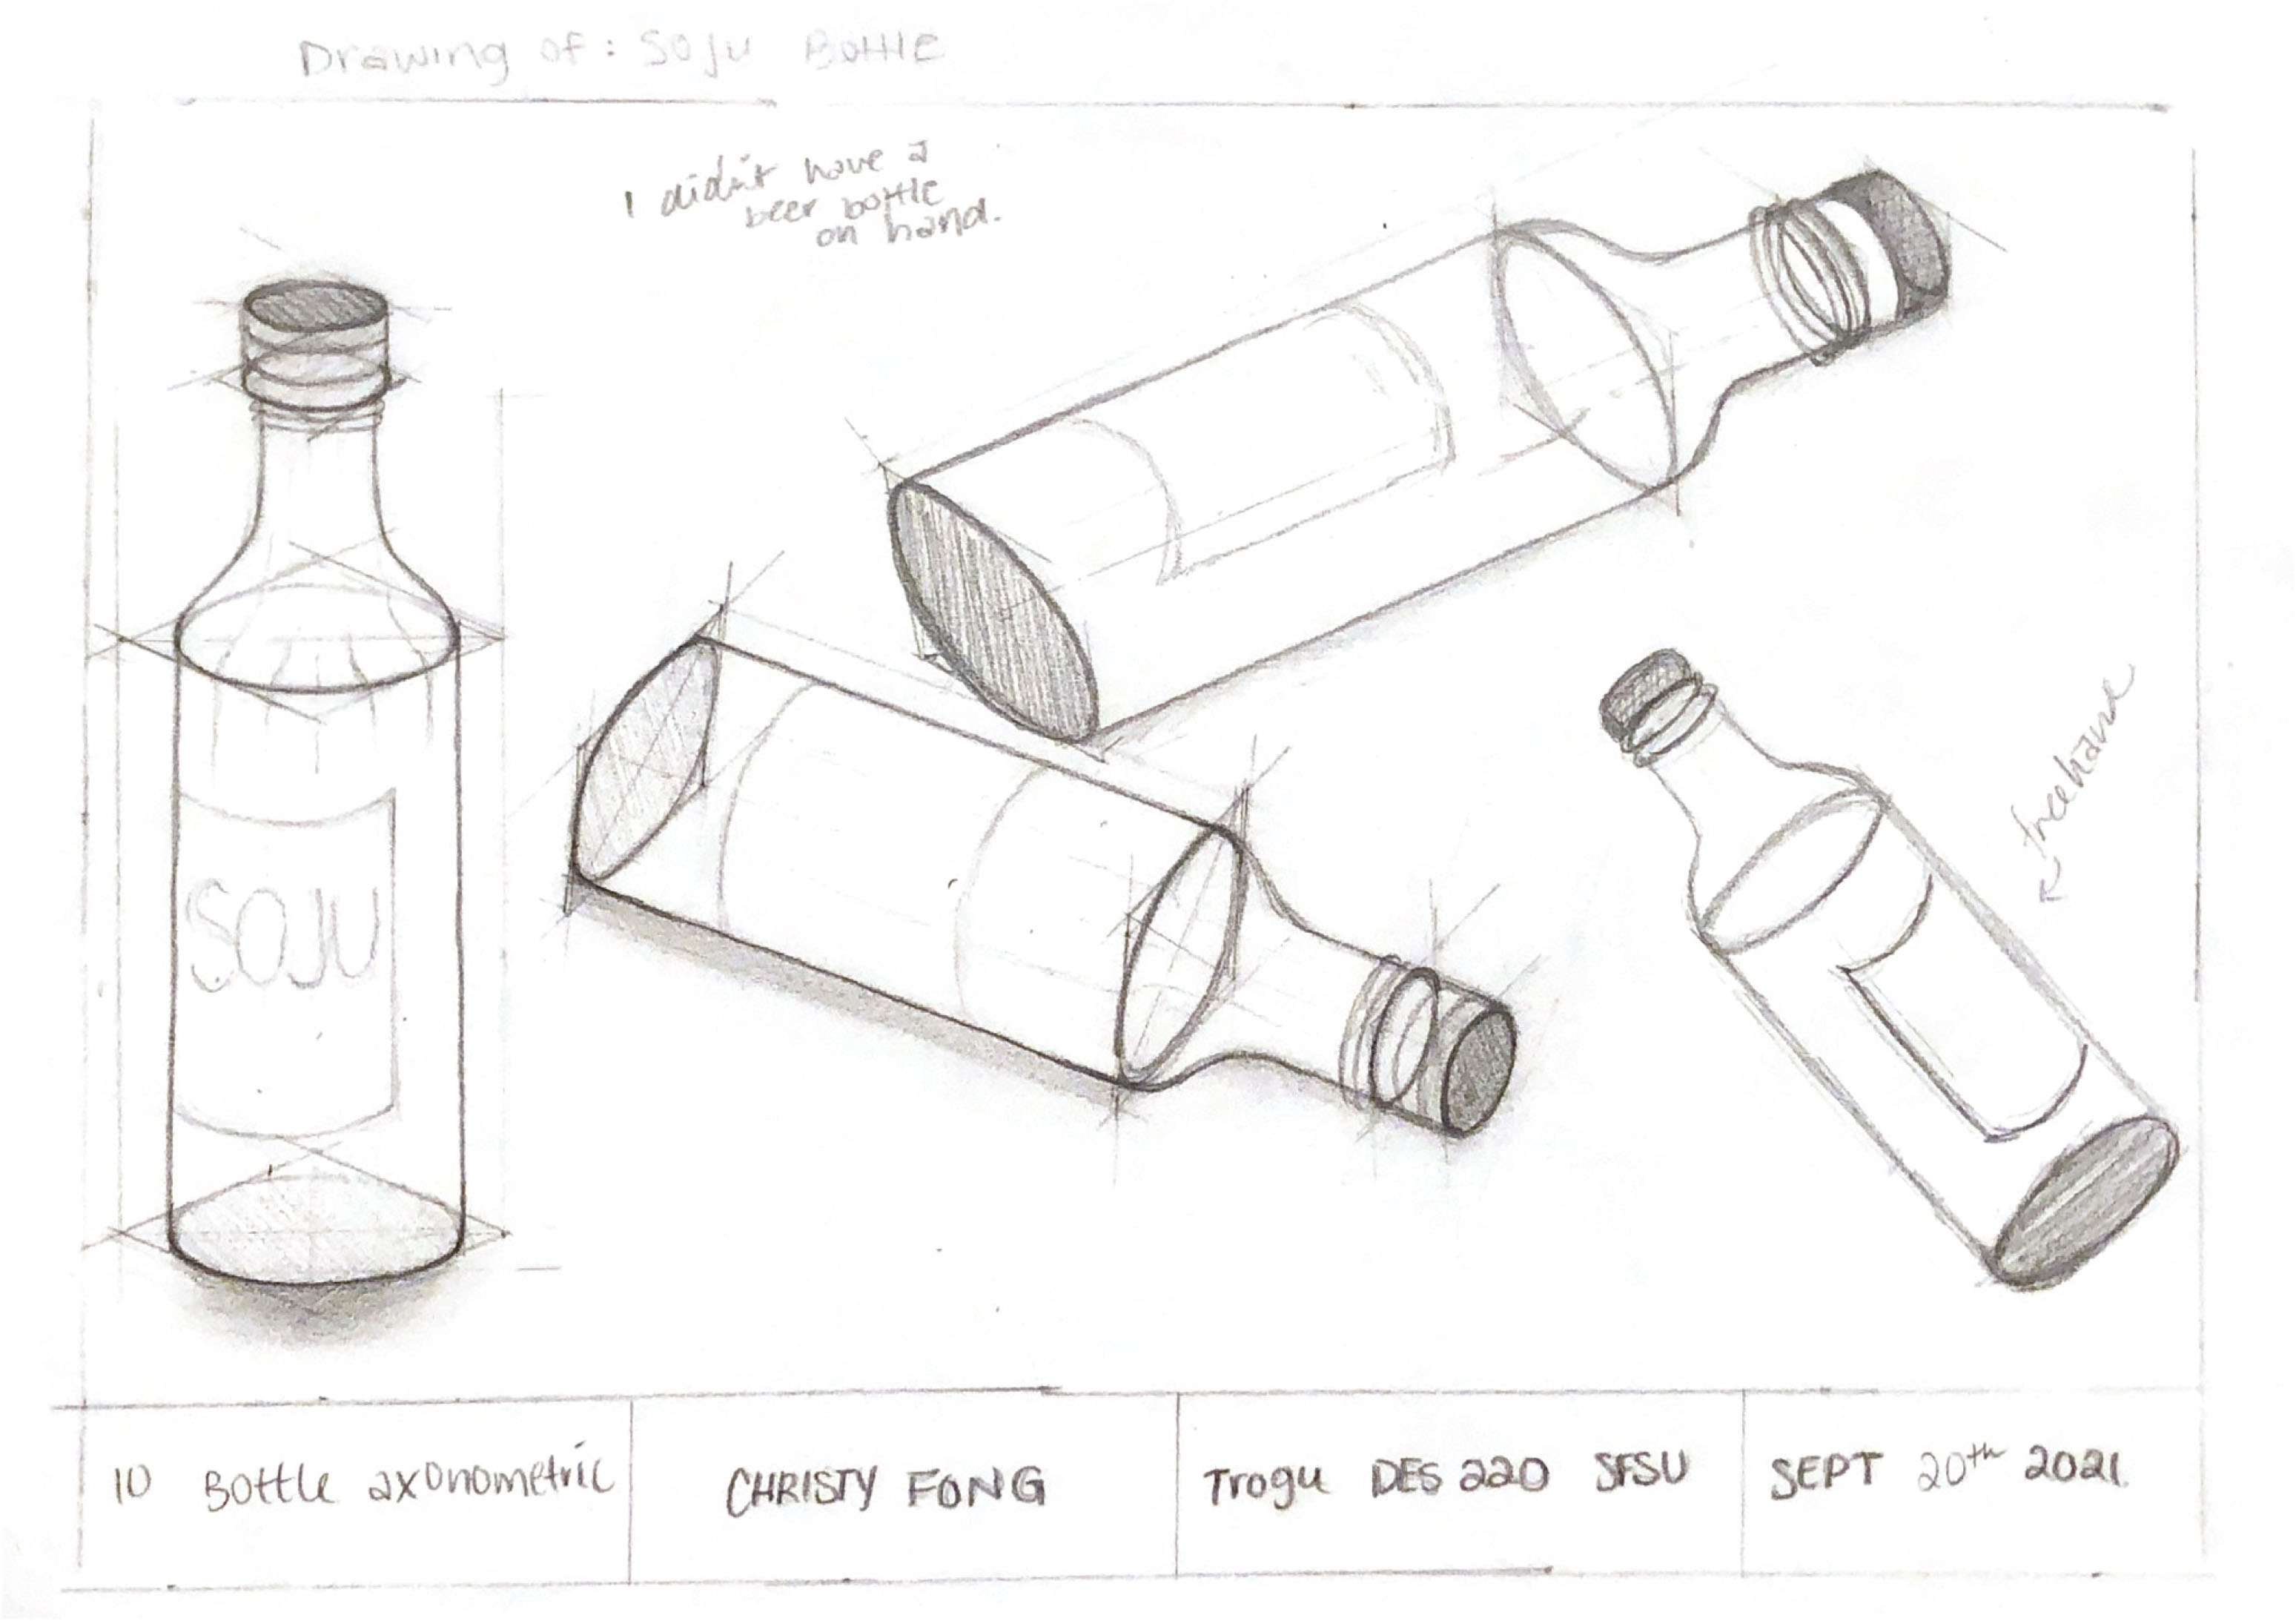 Drawing of: Soju Bottle
I didn't have a
beer bottle
on hand.
SOJU
freehand
10 Bottle axonometric
CHRISTY FONG
Trogu DES 220 SFSU
SEPT 20th 2021.